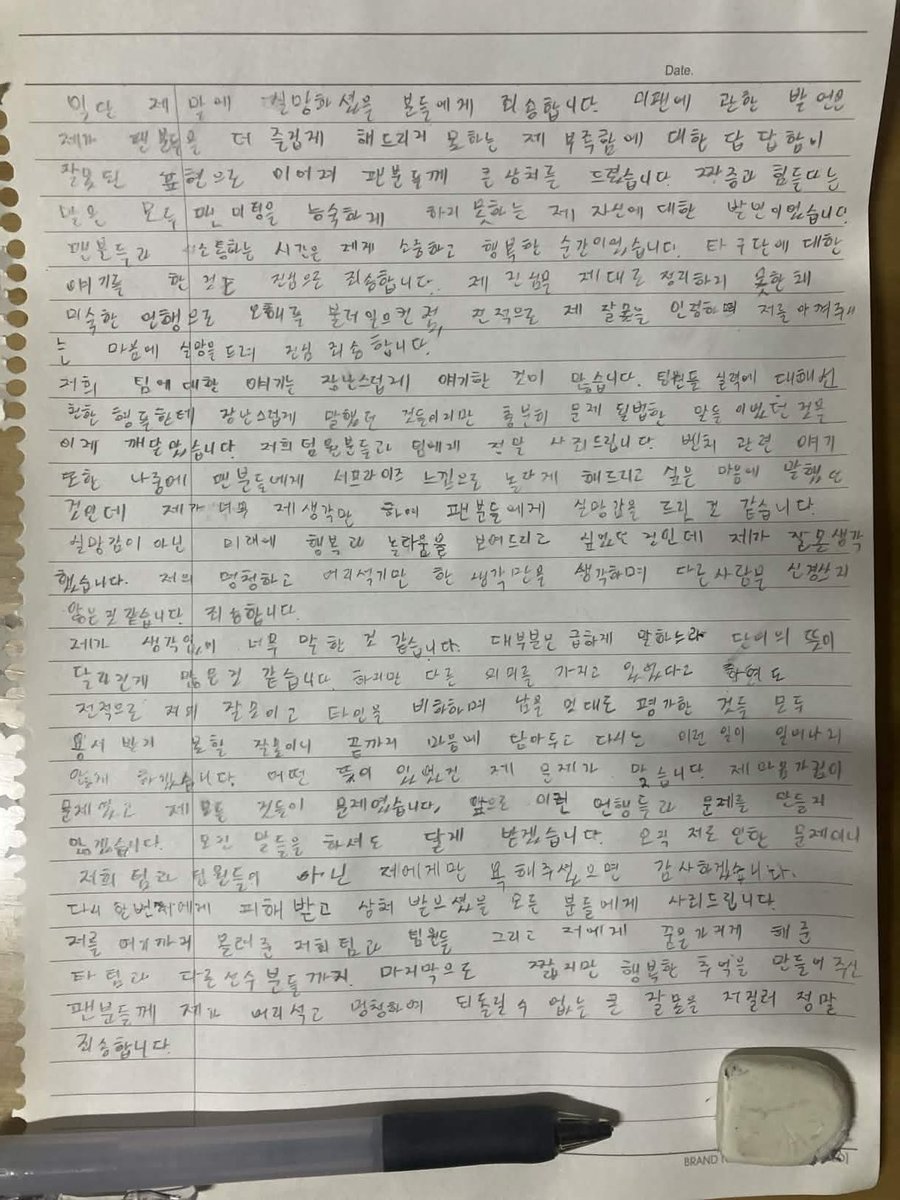 Date.
일단 제 말에 실망하셨을 분들에게 죄송합니다. 미팬에 관한 발언은
제가 팬분들을 더 즐겁게 해드리지 못하는 제 부족함에 대한 답답함이
잘못된 표현으로 이어져 팬분들께 큰 상처를 드렸습니다. 짜증과 힘들다는
말은 모두 팬미팅을 능숙하게 하지 못하는 제 자신에 대한 발언이었습니다.
팬분들과 소통하는 시간은 제게 소중하고 행복한 순간이었습니다. 타 구단에 대한
얘기를 한 것도 진심으로 죄송합니다. 제 진심을 제대로 정리하지 못한 채
미숙한 언행으로 오해를 불러일으킨 점, 전적으로 제 잘못을 인정하며 저를 아껴주시
는 마음에 실망을 드려 진심 죄송합니다.
저희 팀에 대한 얘기는 장난스럽게 얘기한 것이 많습니다. 팀원들 실력에 대해선
친한 형들한테 장난스럽게 말했던 것들이지만 충분히 문제 될법한 말들이었던 것을
이제 깨달았습니다. 저희 팀원분들과 팀에게 정말 사죄드립니다. 벤치 관련 얘기
또한 나중에 팬분들에게 서프라이즈 느낌으로 놀라게 해드리고 싶은 마음에 말했던
것인데 제가 너무 제생각만 하여 팬분들에게 실망감을 드린 것 같습니다.
실망감이 아닌 미래에 행복과 놀라움을 보여드리고 싶었던 것인데 제가 잘못생각
했습니다. 저의 멍청하고 어리석기만 한 생각만을 생각하며 다른사람을 신경쓰지
않은 것 같습니다. 죄송합니다.
제가 생각없이 너무 말한 것 같습니다. 대부분은 급하게 말하느라 단어의 뜻이
달라진게 많은것 같습니다. 하지만 다른 의미를 가지고 있었다고 하여도
전적으로 저의 잘못이고 타인을 비하하며 남을 멋대로 평가한 것들 모두
용서 받지 못할 잘못이니 끝까지 마음에 담아두고 다시는 이런 일이 일어나지
않게 하겠습니다. 어떤 뜻이 있었건 제 문제가 맞습니다. 제 마음가짐이
문제였고 제 모든 것들이 문제였습니다. 앞으로 이런 언행들과 문제를 만들지
않겠습니다. 모진 말들을 하셔도 달게 받겠습니다. 오직 저로 인한 문제이니
저희 팀과 팀원들이 아닌 제에게만 욕해주셨으면 감사하겠습니다.
다시 한번 저에게 피해 받고 상처 받으셨을 모든 분들에게 사죄드립니다.
저를 여기까지 올려준 저희팀과 팀원들 그리고 저에게 꿈을 가지게 해준
타 팀과 다른선수분들까지. 마지막으로 짧지만 행복한 추억을 만들어 주신
팬분들께 제가 어리석고 멍청하여 되돌릴 수 없는 큰 잘못을 저질러 정말
죄송합니다.
BRAND